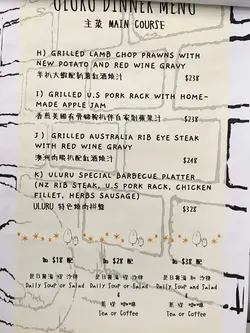 ULURU DINNER MENU
主菜 MAIN COURSE
H) GRILLED LAMB CHOP PRAWNS WITH
NEW POTATO AND RED WINE GRAVY
羊扒大蝦配新薯紅酒燒汁 $238
I) GRILLED U.S PORK RACK WITH HOME-
MADE APPLE JAM
香煎美國有骨豬鞍扒伴自家制蘋果汁 $238
J) GRILLED AUSTRALIA RIB EYE STEAK
WITH RED WINE GRAVY
澳洲肉眼扒配紅酒燒汁 $248
K) ULURU SPECIAL BARBECUE PLATTER
(NZ RIB STEAK, U.S PORK RACK, CHICKEN
FILLET, HERBS SAUSAGE)
ULURU 特色燒肉拼盤 $288
加 $18 配 加 $28 配 加 $38 配
是日餐湯 或 沙律 是日餐湯 或 沙律 是日餐湯 和 沙律
Daily Soup or Salad Daily Soup or Salad Daily Soup and Salad
& &
茶 或 咖啡 茶 或 咖啡
Tea or Coffee Tea or Coffee